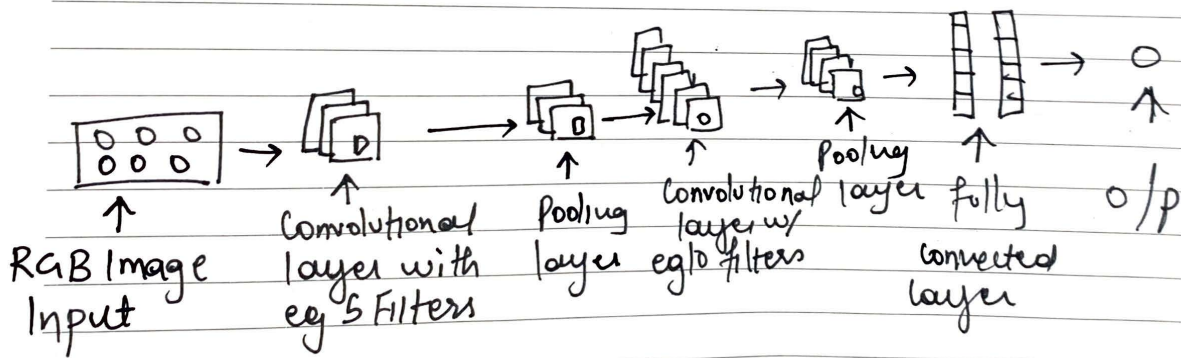 RGB Image
Input
Convolutional
layer with
eg 5 Filters
Pooling
layer
Convolutional
layer w/
eg 10 filters
Pooling
layer
fully
connected
layer
O/P